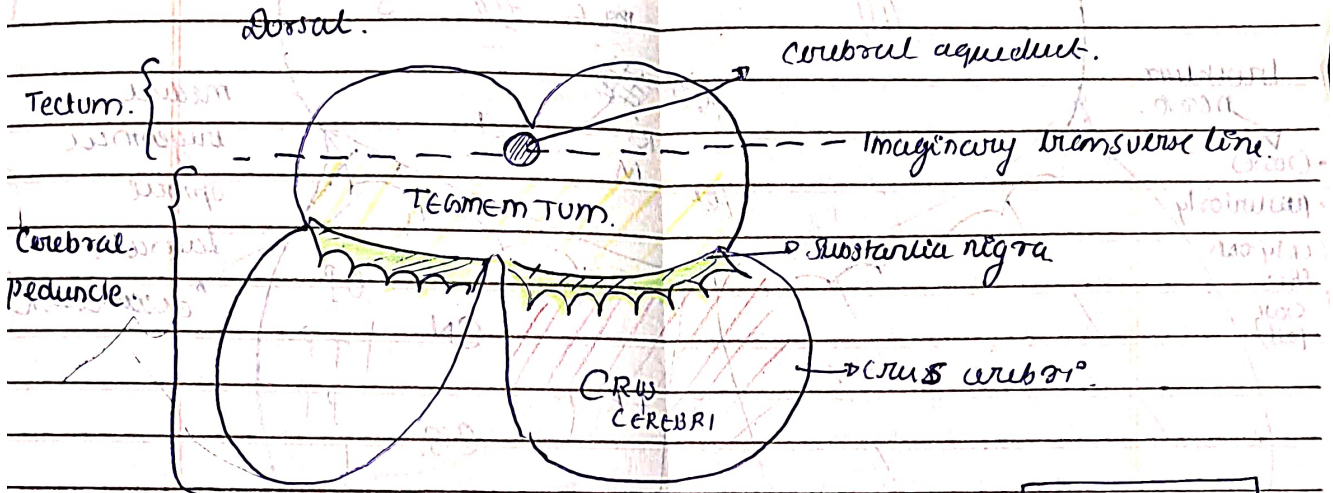 Dorsal.
Cerebral aqueduct.
Tectum.
Imaginary transverse line.
TEGMEMTUM.
Cerebral
peduncle.
Substantia nigra
Crus cerebri.
CRUS
CEREBRI